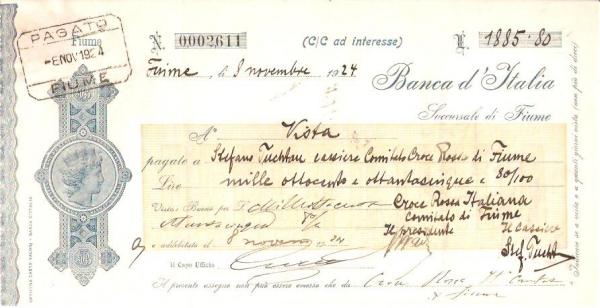 PAGATO
Fiume
-8 NOV 1924
FIUME
N. 0002611
(C/C ad interesse)
L. 1885.80
Fiume, li 8 novembre 1924
Banca d'Italia
Succursale di Fiume
A Vista
pagate a Stefano Tuchtan cassiere Comitato Croce Rossa di Fiume
Lire mille ottocento e ottantacinque e 80/100
Visto: Buono per £ Milleottocento
Croce Rossa Italiana
Comitato di Fiume
Il presidente
Il Cassiere
e addebitato il novembre 24
Stef. Tucht
Il Capo Ufficio
Il presente assegno non può essere emesso che da Croce Rossa It
Fiume
OFFICINA CARTE VALORI - BANCA D'ITALIA